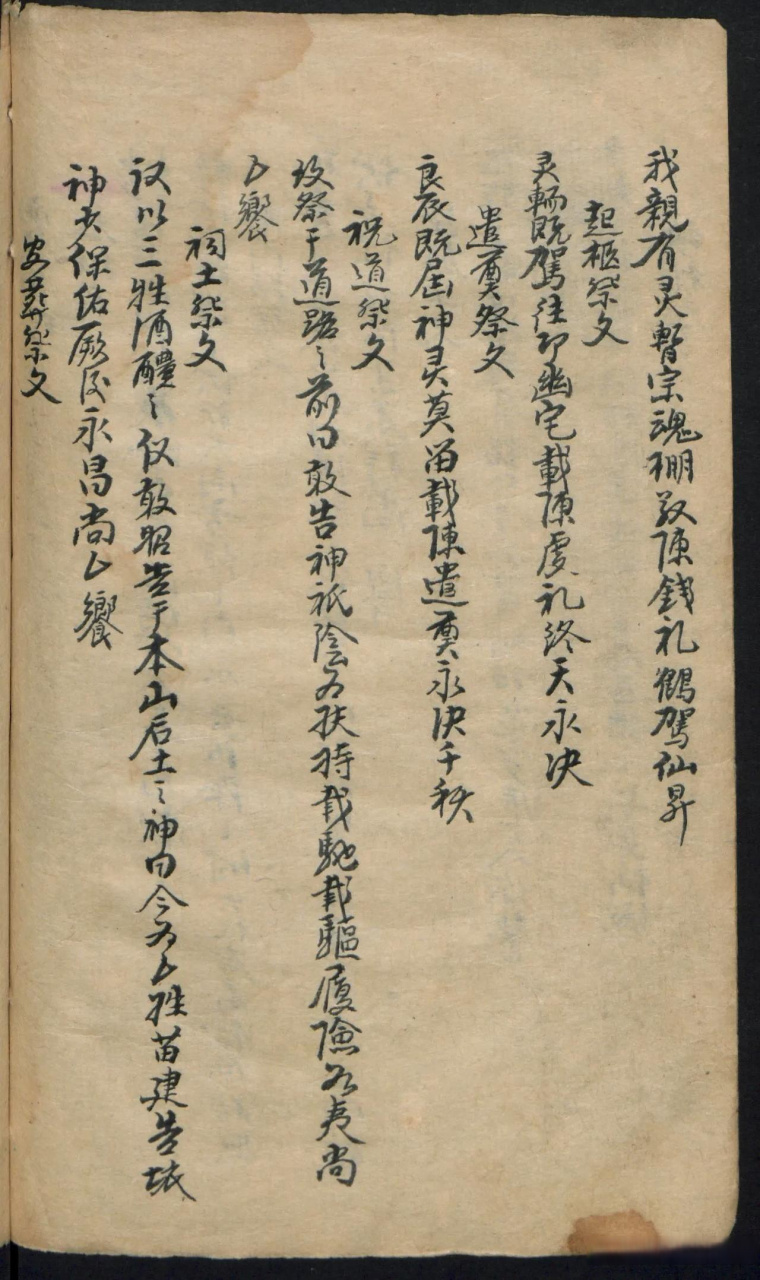 我親有灵暫宗魂棚敬陳錢礼鶴駕仙昇
起柩祭文
灵輀既駕往即幽宅載陳虔礼终天永决
遣奠祭文
良辰既届神灵莫留載陳遣奠永决千秋
祝道祭文
致祭于道路之前曰敢告神祇陰为扶持载馳载驅履險若夷尚
饗
祠土祭文
谨以三牲酒醴之仪敢昭告于本山后土之神曰今为厶姓苗建告坟
神必保佑厥後永昌尚厶饗
安葬祭文